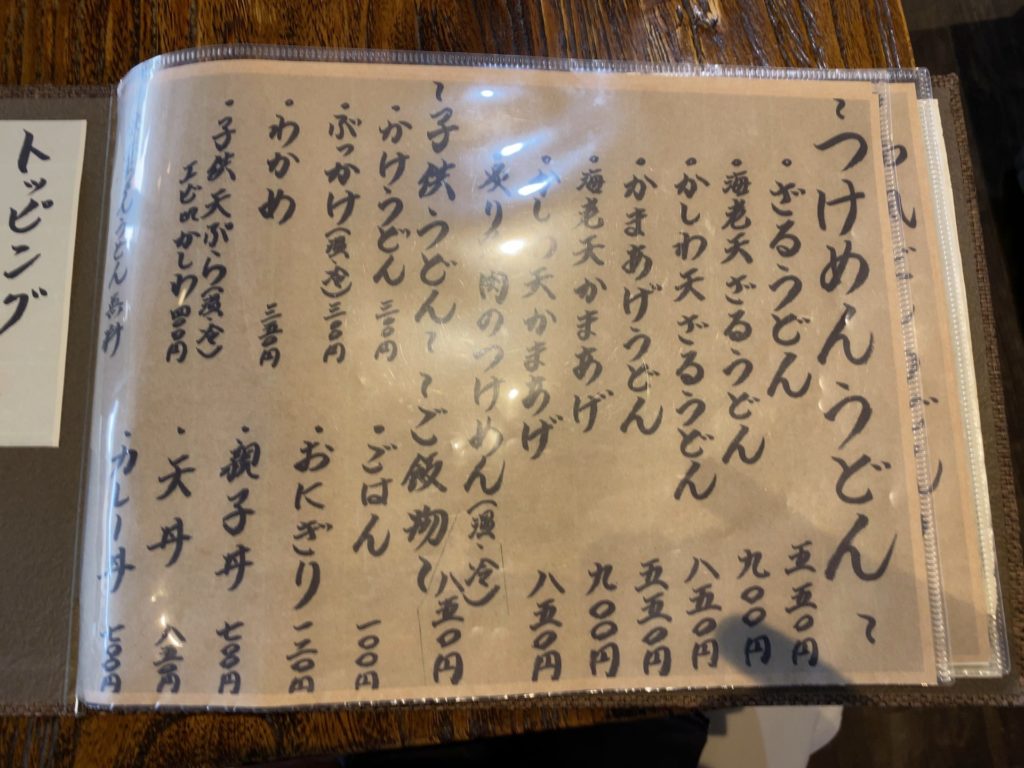 〜つけめんうどん〜
・ざるうどん 五五〇円
・海老天ざるうどん 九〇〇円
・かしわ天ざるうどん 八五〇円
・かまあげうどん 五五〇円
・海老天かまあげ 九〇〇円
・かしわ天かまあげ 八五〇円
・炙り肉のつけめん(温・冷) 八五〇円
〜子供うどん〜
・かけうどん 三〇〇円
・ぶっかけ(温・冷) 三〇〇円
・わかめ 三五〇円
・子供天ぷら(温・冷)
エビ以かしわ 四〇〇円
うどん無料
〜ご飯物〜
・ごはん 一〇〇円
・おにぎり 一二〇円
・親子丼 七〇〇円
・天丼 八五〇円
・カレー丼 七〇〇円
トッピング